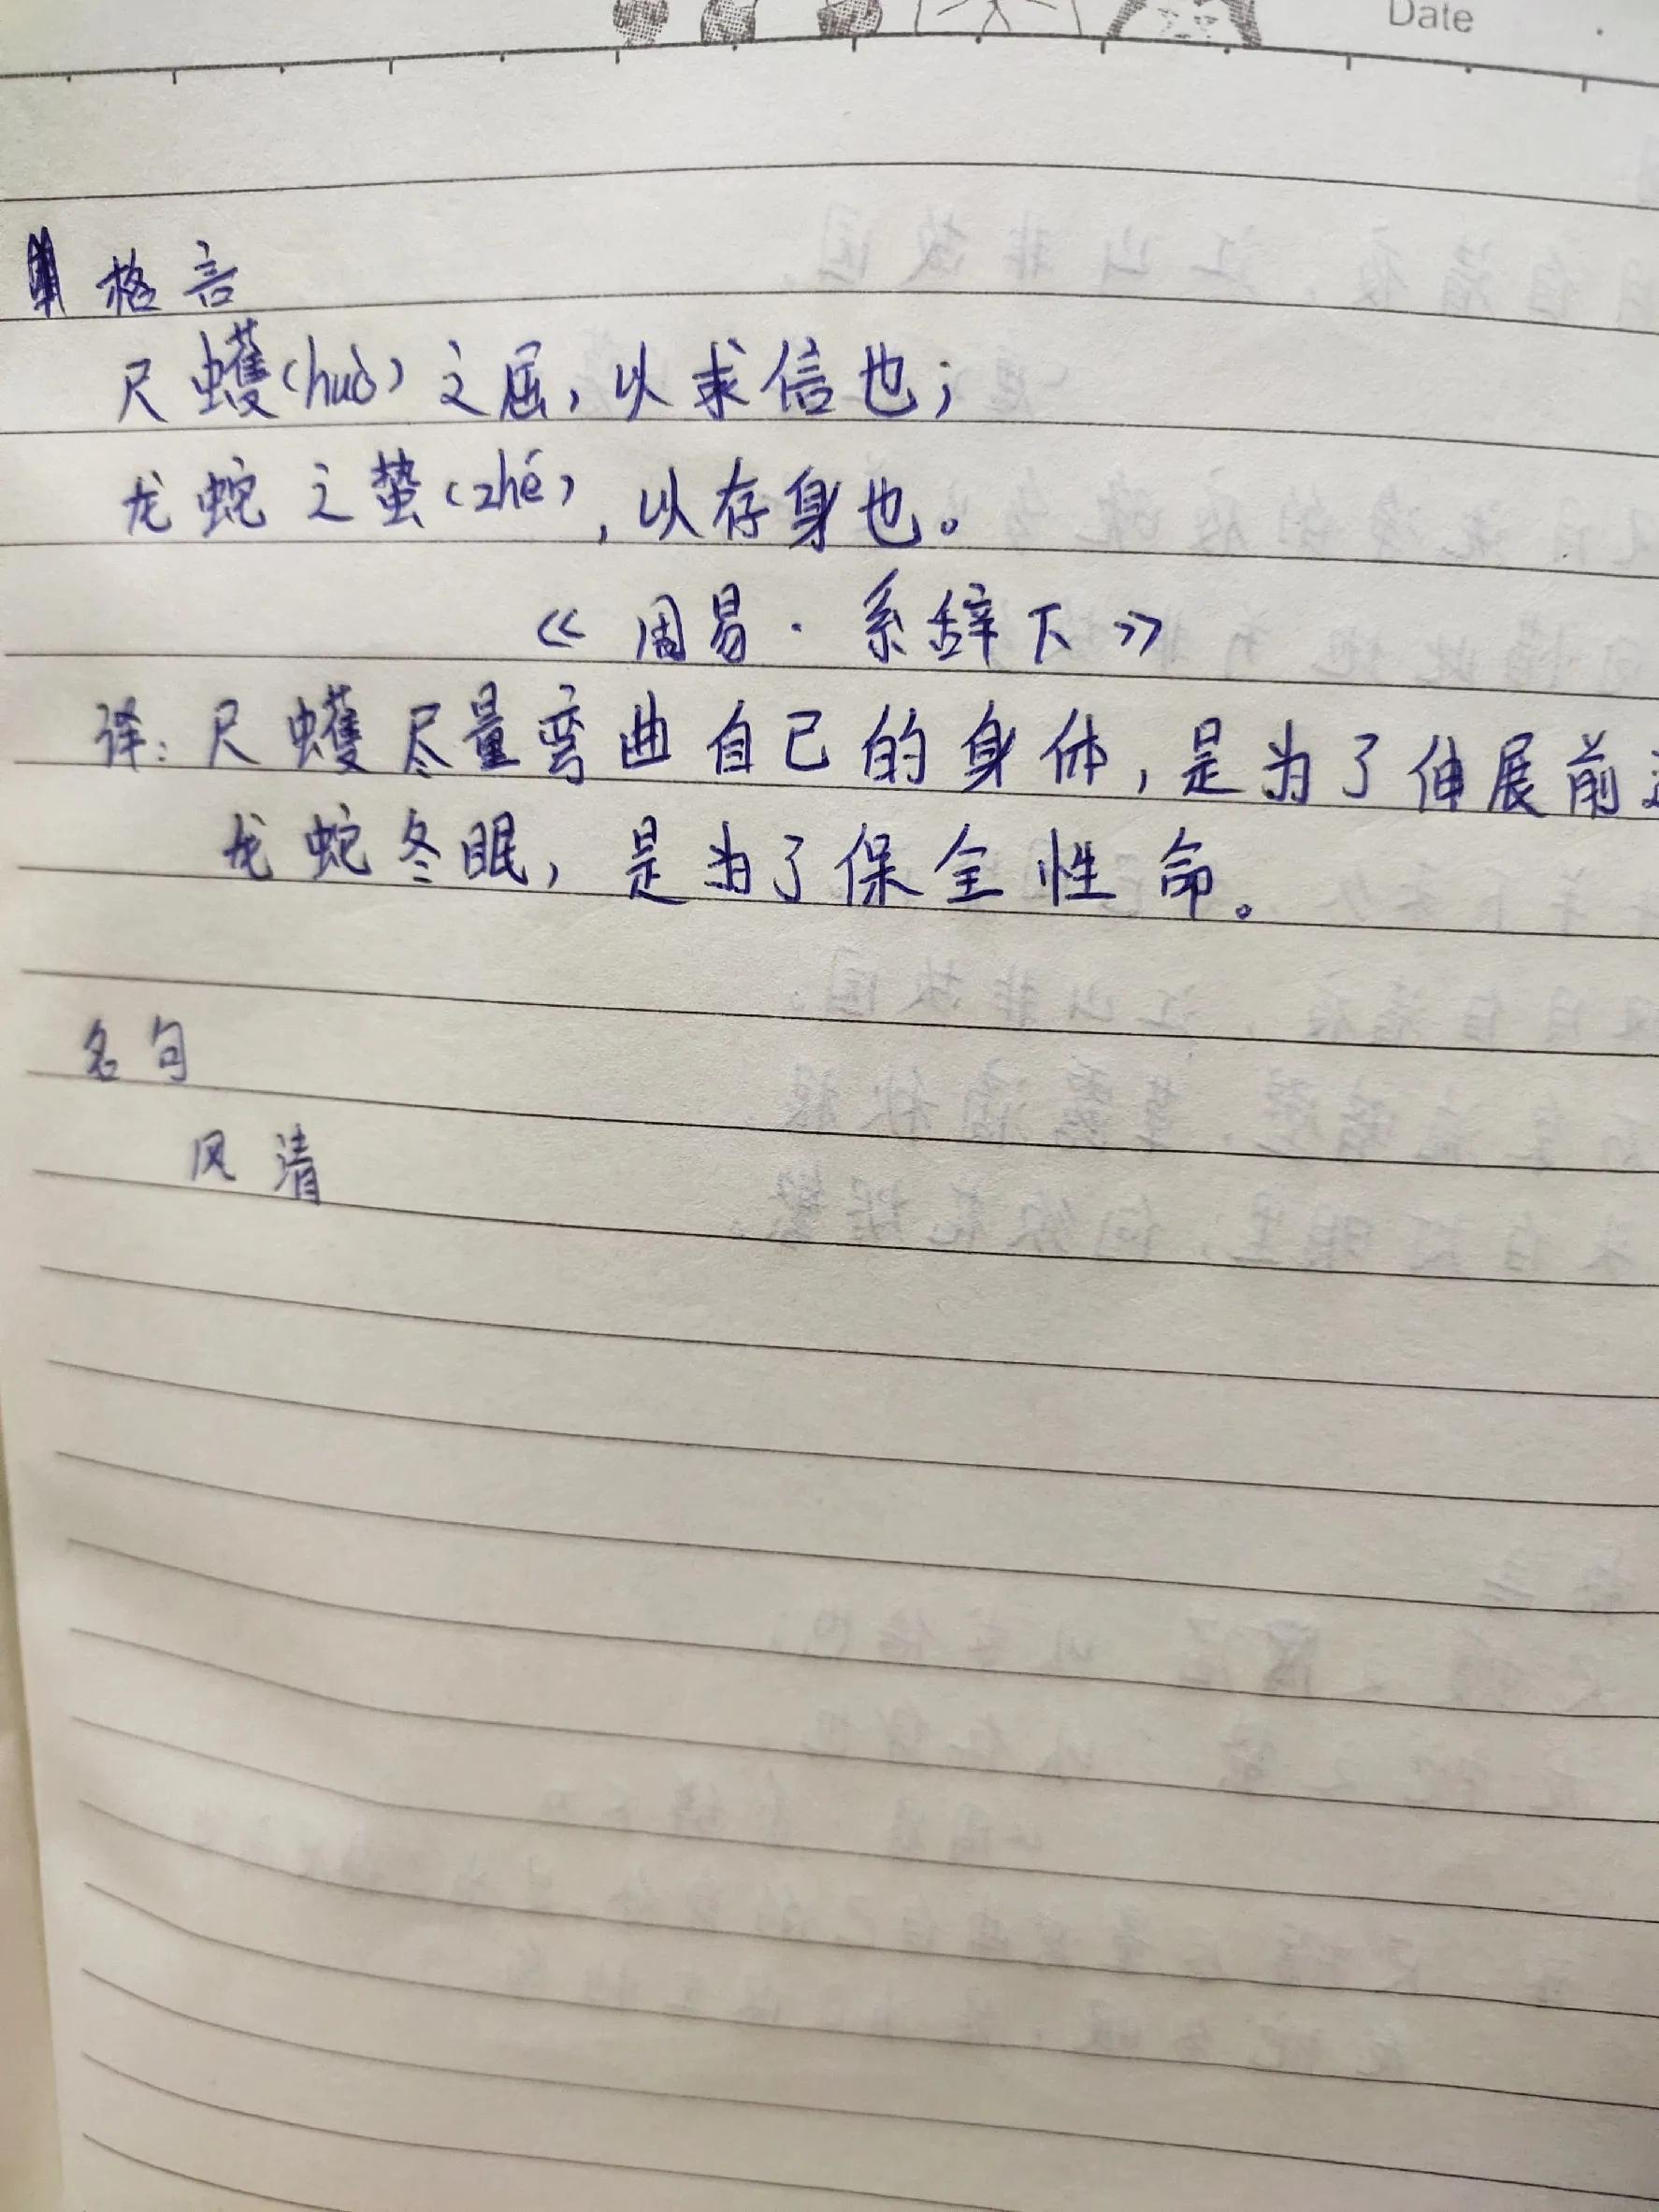 Date
格言
尺蠖(huò)之屈,以求信也;
龙蛇之蛰(zhé),以存身也。
《周易·系辞下》
译:尺蠖尽量弯曲自己的身体,是为了伸展前
龙蛇冬眠,是为了保全性命。
名句
风清